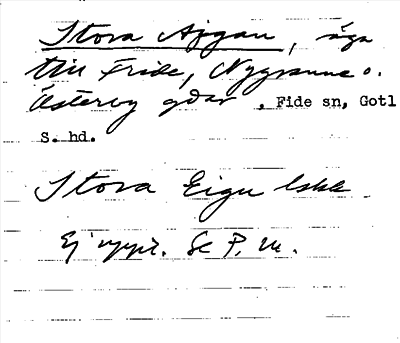 Stora Ajgau, äga
till Fride, Nygranne o.
Österby gdar, Fide sn, Gotl
S. hd.
Stora Eigu
Ej uppr. Se P.M.